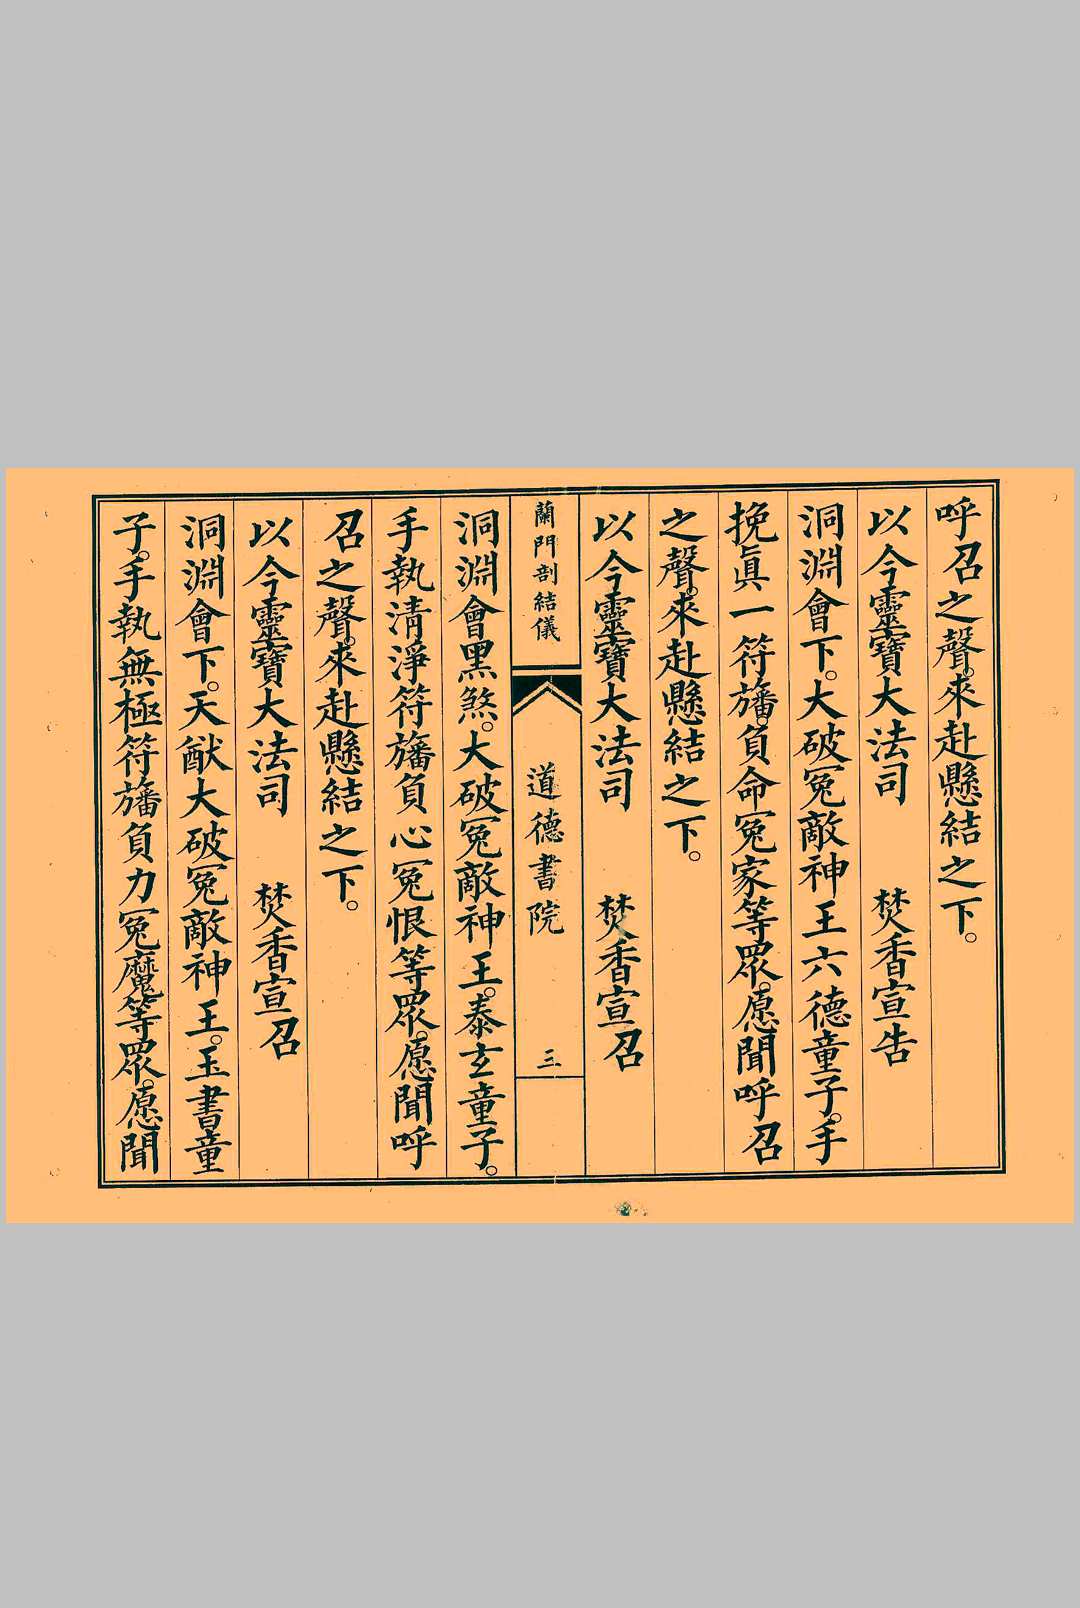 呼召之聲。來赴懸結之下。
以今靈寶大法司　焚香宣告
洞淵會下。大破冤敵神王六德童子。手
挽眞一符旛。負命冤家等眾。愿聞呼召
之聲。來赴懸結之下。
以今靈寶大法司　焚香宣召
蘭門剖結儀　道德書院　三
洞淵會黑煞。大破冤敵神王。泰玄童子。
手執清淨符旛負心冤恨等眾。愿聞呼
召之聲。來赴懸結之下。
以今靈寶大法司　焚香宣召
洞淵會下。天猷大破冤敵神王。玉書童
子。手執無極符旛負力冤魔等眾。愿聞